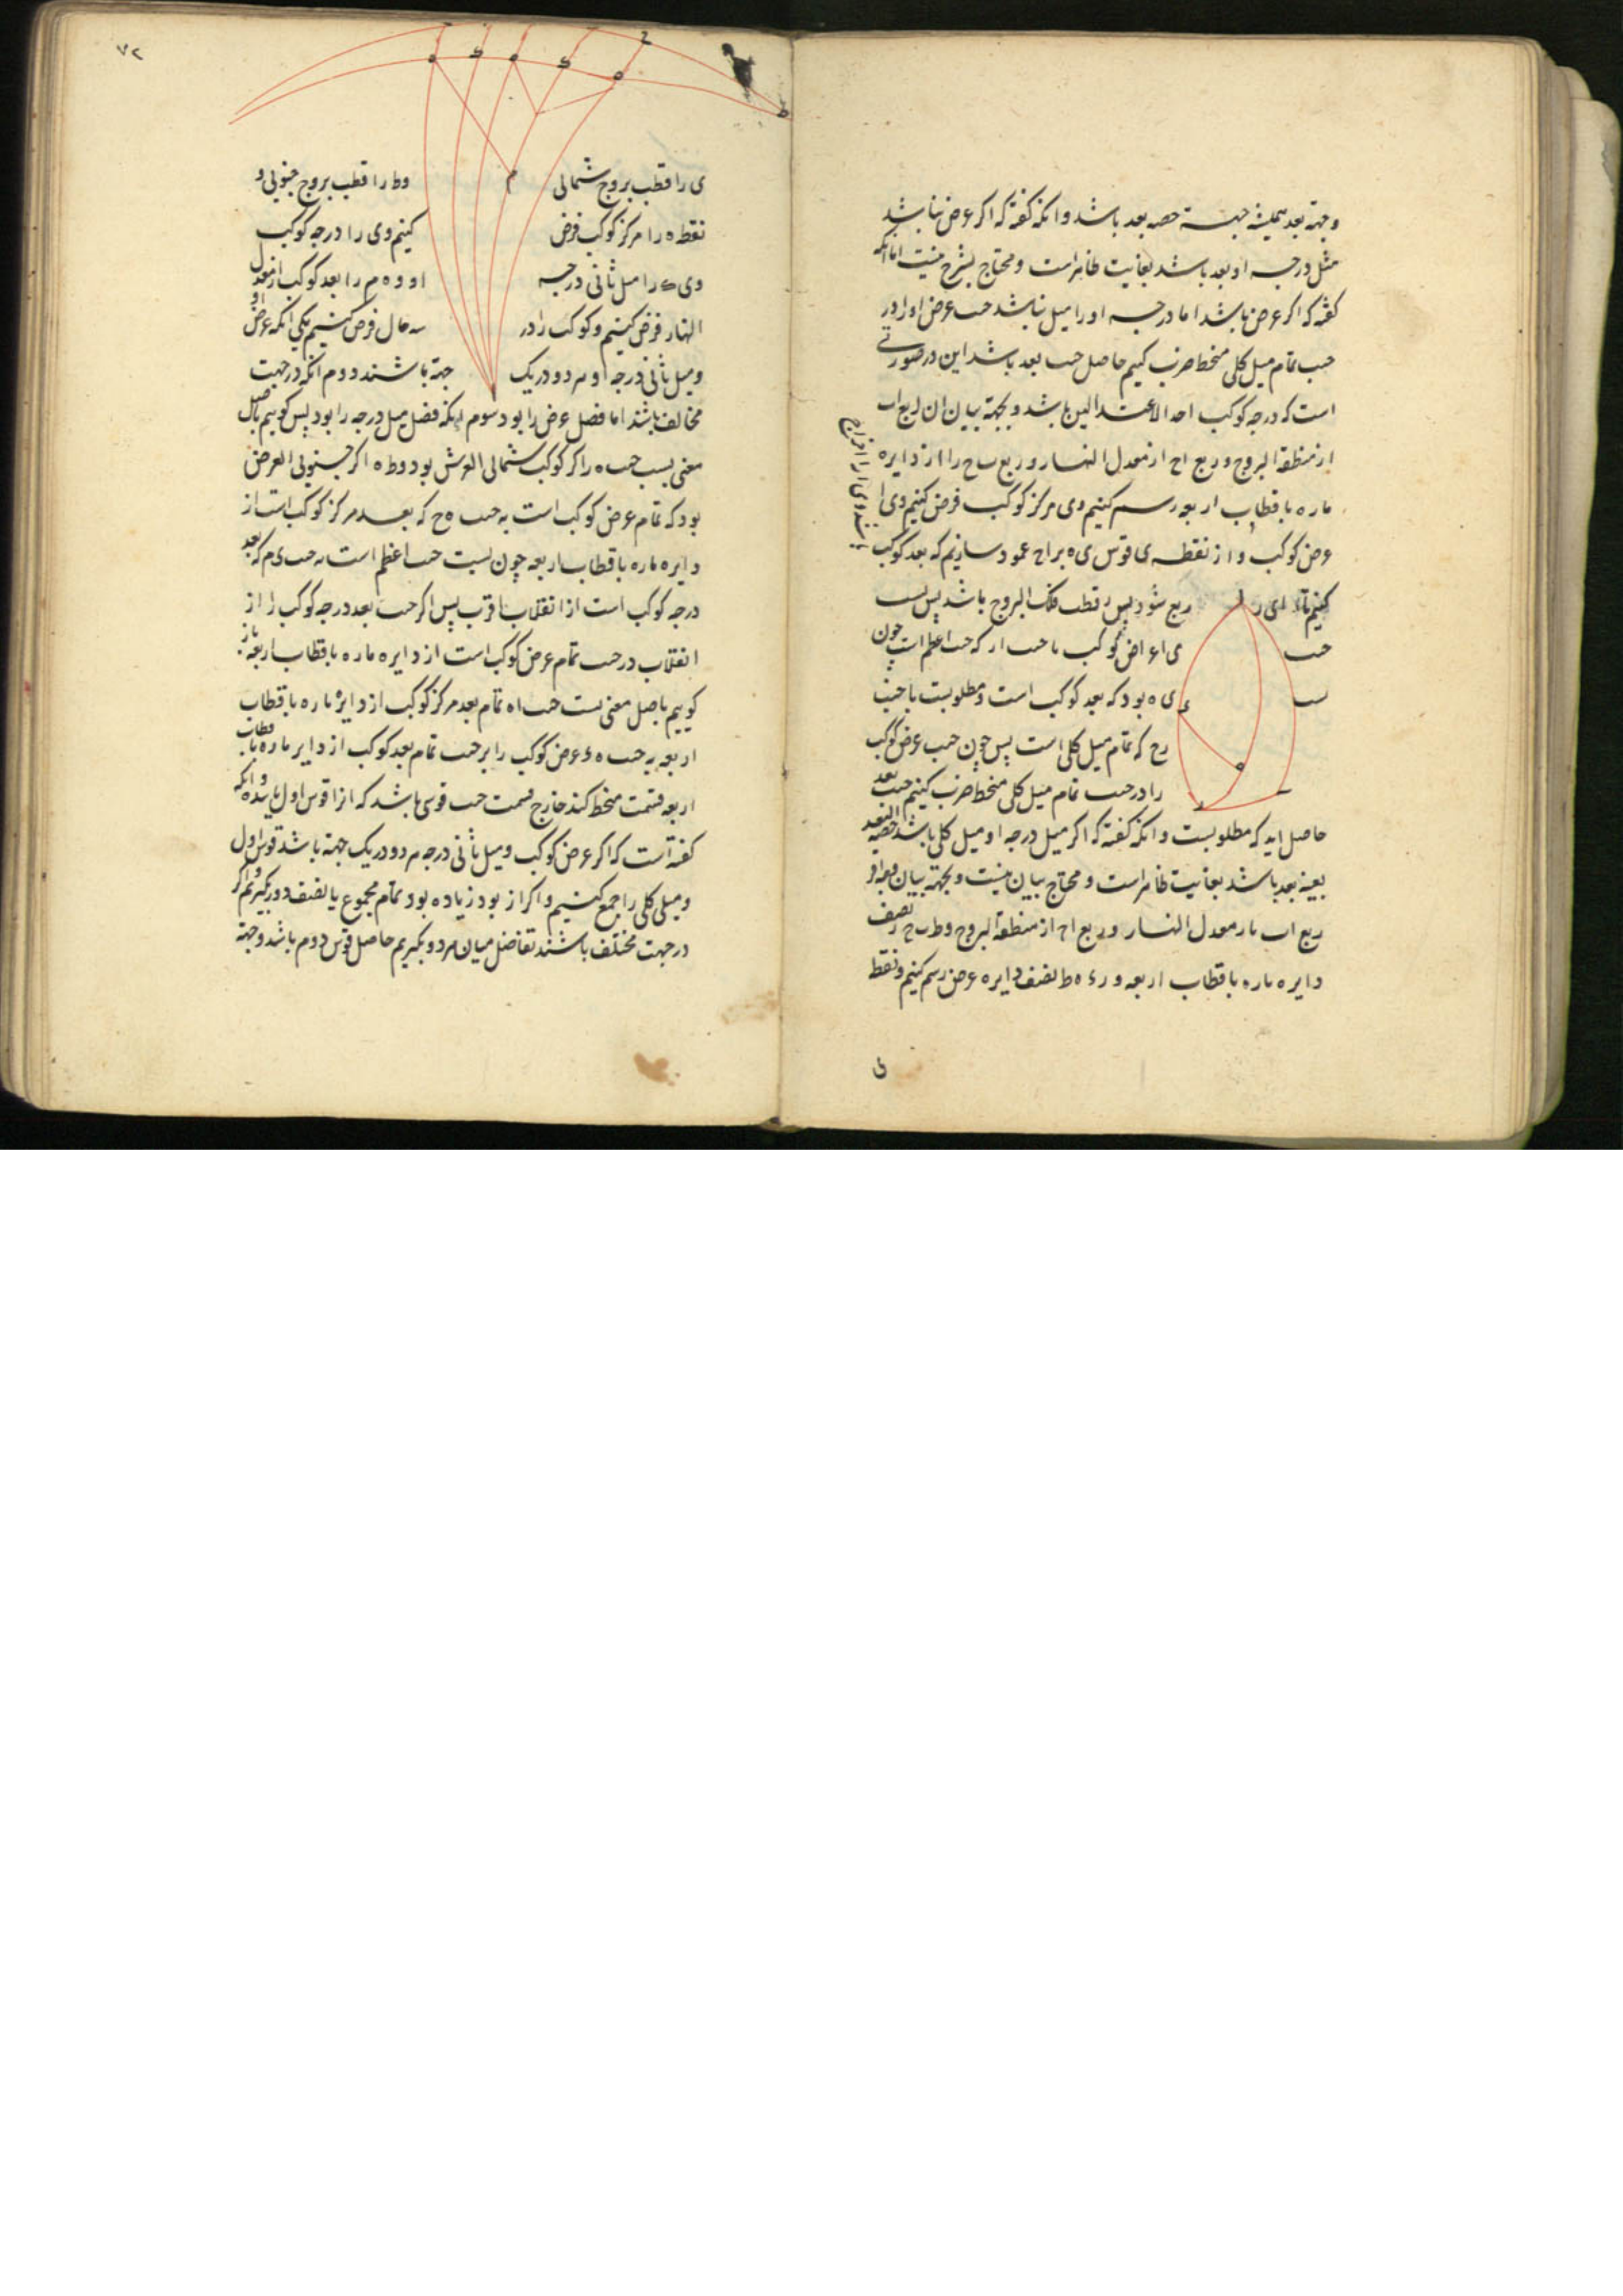 وجهة بعد همیشه جهت حصه بعد باشد وانکه گفته که اکر عرض نباشد
مثل درجه او بعد باشد بغایت ظاهر است ومحتاج بشرح نیست اما انکه
گفته که اکر عرض باشد اما درجه او را میل نباشد جیب عرض او را در
جیب تمام میل کلی منحط ضرب کنیم حاصل جیب بعد باشد این در صورتی
است که درجه کوکب احد الاعتدالین باشد وبجهة بیان ان ربع اب
از منطقة البروج وربع اح از معدل النهار وربع ب ح را از دایره
ماره باقطاب اربعه رسم کنیم وی مرکز کوکب فرض کنیم وی ا
عرض کوکب و از نقطه ی قوس ی ه بر اح عمود سازیم که بعد کوکب
باشد وی ا را اخراج
کنیم تا ای ر ربع شود پس ر قطب فلک البروج باشد پس نسبت
جیب ی ا عرض کوکب با جیب ار که جیب اعظم است چون
نسبت ی ه بود که بعد کوکب است ومطلوبست با جیب
رح که تمام میل کلی است پس چون جیب عرض کوکب
را در جیب تمام میل کلی منحط ضرب کنیم جیب بعد
حاصل اید که مطلوبست وانکه گفته که اکر میل درجه او میل کلی باشد حصة البعد
بعینه بعد باشد بغایت ظاهر است ومحتاج بیان نیست وبجهة بیان
ربع اب از معدل النهار وربع اح از منطقة البروج وط ب ح ر نصف
دایره ماره باقطاب اربعه و رء ه ط نصف دایره عرض رسم کنیم ونقطه
ی
۷۲
ی را قطب بروج شمالی وط را قطب بروج جنوبی و
نقطه ه را مرکز کوکب فرض کنیم وی را درجه کوکب
وی ک را میل ثانی درجه او و ه م را بعد کوکب از معدل
النهار فرض کنیم وکوکب را در سه حال فرض کنیم یکی انکه عرض او
ومیل ثانی درجه او هر دو در یک جهة باشند دوم انکه در جهت
مخالف باشند اما فضل عرض را بود سوم انکه فضل میل درجه را بود پس کوییم باصل
مغنی نسبت جیب ه ر اکر کوکب شمالی العرض بود وط ه اکر جنوبی العرض
بود که تمام عرض کوکب است به جیب ه ح که بعد مرکز کوکب است از
دایره ماره باقطاب اربعه چون نسبت جیب اعظم است به جیب ی م که بعد
درجه کوکب است از انقلاب اقرب پس اکر جیب بعد درجه کوکب را از
انقلاب در جیب تمام عرض کوکب است از دایره ماره باقطاب اربعه باز
کوییم باصل مغنی نسبت جیب اه تمام بعد مرکز کوکب از دایره ماره باقطاب
اربعه به جیب ه ء عرض کوکب را بر جیب تمام بعد کوکب از دایره ماره باقطاب
اربعه قسمت منحط کند خارج قسمت جیب قوسی باشد که انرا قوس اول نامیده وانکه
گفته است که اکر عرض کوکب ومیل ثانی درجه هر دو در یک جهة باشد قوس اول
ومیل کلی را جمع کنیم واکر از بود زیاده بود تمام مجموع یا نصف دور بکیریم واکر
در جهت مختلف باشند تفاضل میان هر دو بکیریم حاصل قوس دوم باشد وجهة